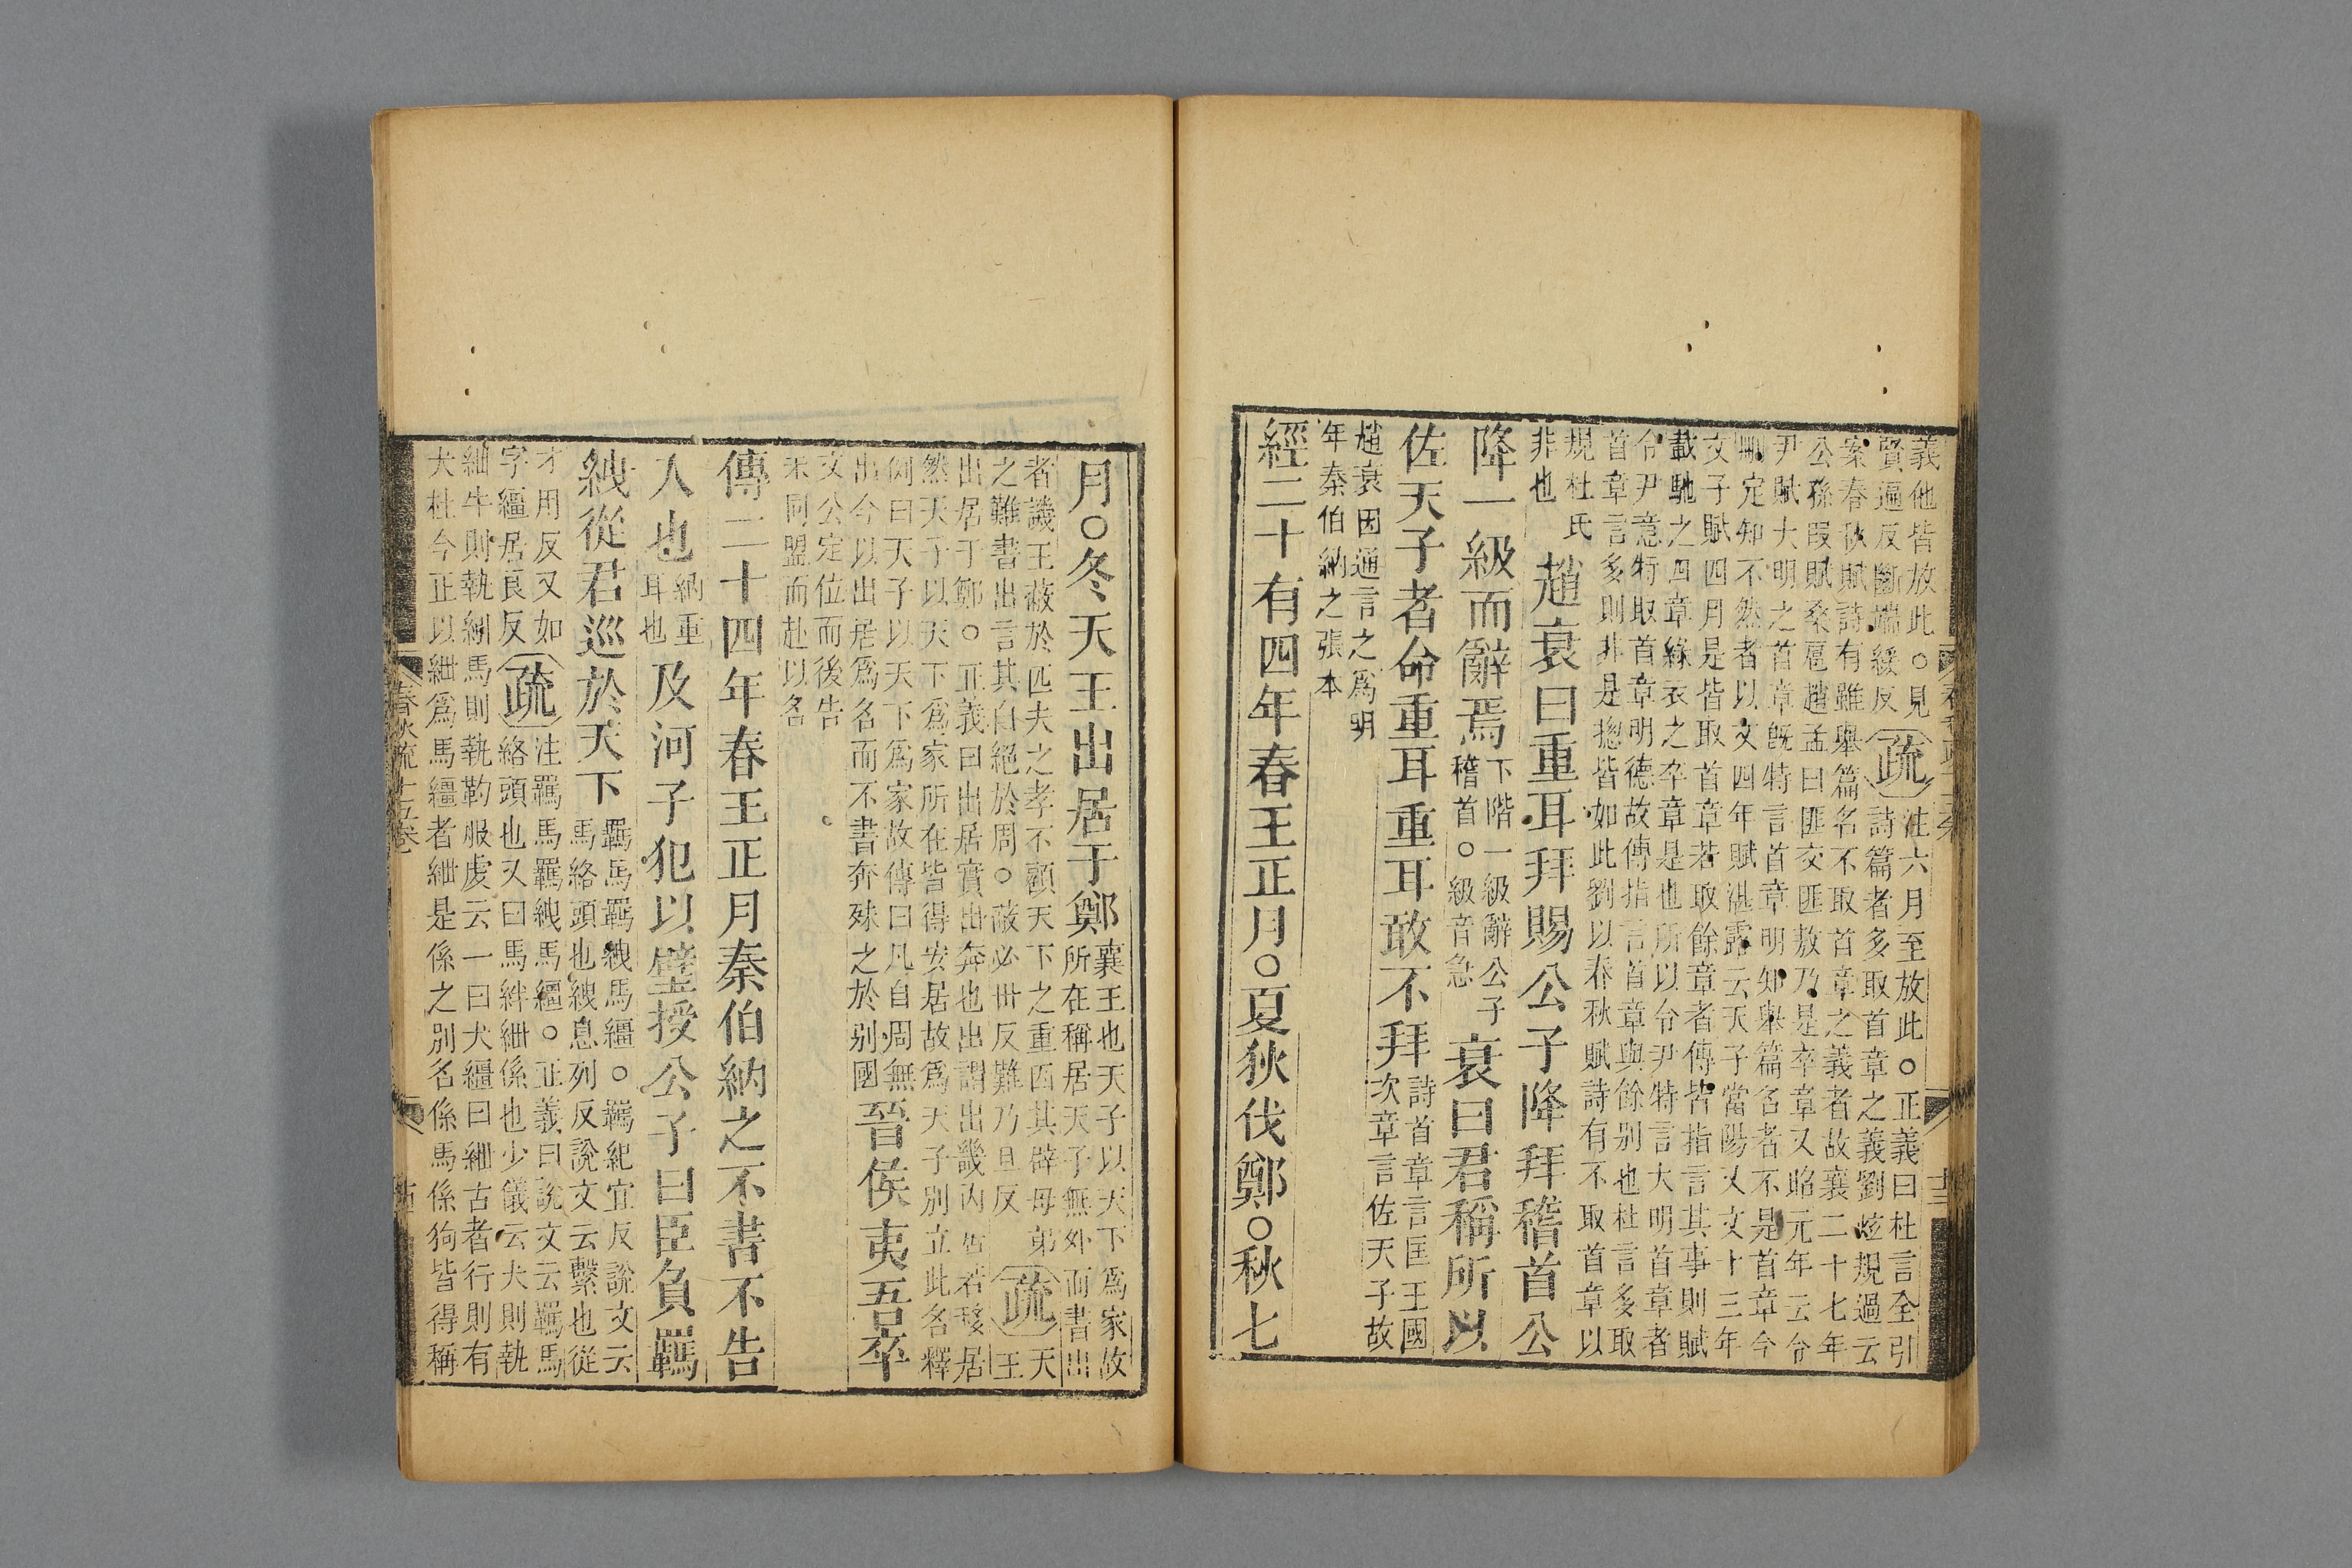 義他皆放此○見
賢遍反斷端緩反疏
注六月至放此○正義曰杜言全引
詩篇者多取首章之義劉炫規過云
案春秋賦詩有雖舉篇名不取首章之義者故襄二十七年
公孫段賦桑扈趙孟曰匪交匪敖乃是卒章又昭元年云令
尹賦大明之首章旣特言首章明知舉篇名者不是首章今
刪定知不然者以文四年賦湛露云天子當陽又文十三年
文子賦四月是皆取首章若取餘章者傳皆指言其事則賦
載馳之四章綠衣之卒章是也所以令尹特言大明首章者
令尹意特取首章明德故傳指言首章與餘別也杜言多取
首章言多則非是揔皆如此劉以春秋賦詩有不取首章以
規杜氏
非也
趙衰曰重耳拜賜公子降拜稽首公
降一級而辭焉
下階一級辭公子
稽首○級音急
衰曰君稱所以
佐天子者命重耳重耳敢不拜
詩首章言匡王國
次章言佐天子故
趙衰因通言之爲明
年秦伯納之張本
經二十有四年春王正月○夏狄伐鄭○秋七
月○冬天王出居于鄭
襄王也天子以天下爲家故
所在稱居天子無外而書出
者譏王蔽於匹夫之孝不顧天下之重因其辟母弟
之難書出言其自絕於周○蔽必世反難乃旦反
疏
天
王
出居于鄭○正義曰出居實出奔也出謂出畿內居若移居
然天子以天下爲家所在皆得安居故爲天子別立此名釋
例曰天子以天下爲家故傳曰凡自周無
出今以出居爲名而不書奔殊之於別國
晉侯夷吾卒
文公定位而後告
未同盟而赴以名
傳二十四年春王正月秦伯納之不書不告
入也
納重
耳也
及河子犯以璧授公子曰臣負羈
絏從君巡於天下
羈馬羈絏馬繮○羈紀宜反說文云
馬絡頭也絏息列反說文云繫也從
才用反又如
字繮居良反
疏
注羈馬羈絏馬繮○正義曰說文云羈馬
絡頭也又曰馬絆紲係也少儀云犬則執
紲牛則執紖馬則執靮服虔云一曰犬繮曰紲古者行則有
犬杜今正以紲爲馬繮者紲是係之別名係馬係狗皆得稱
春秋疏十五卷